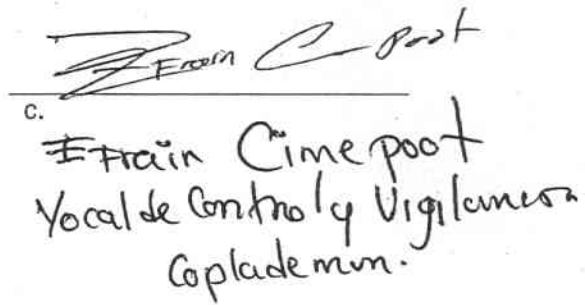 Efrain C Poot
C.
Efrain Cime poot
Vocal de Control y Vigilancia
Coplademun.